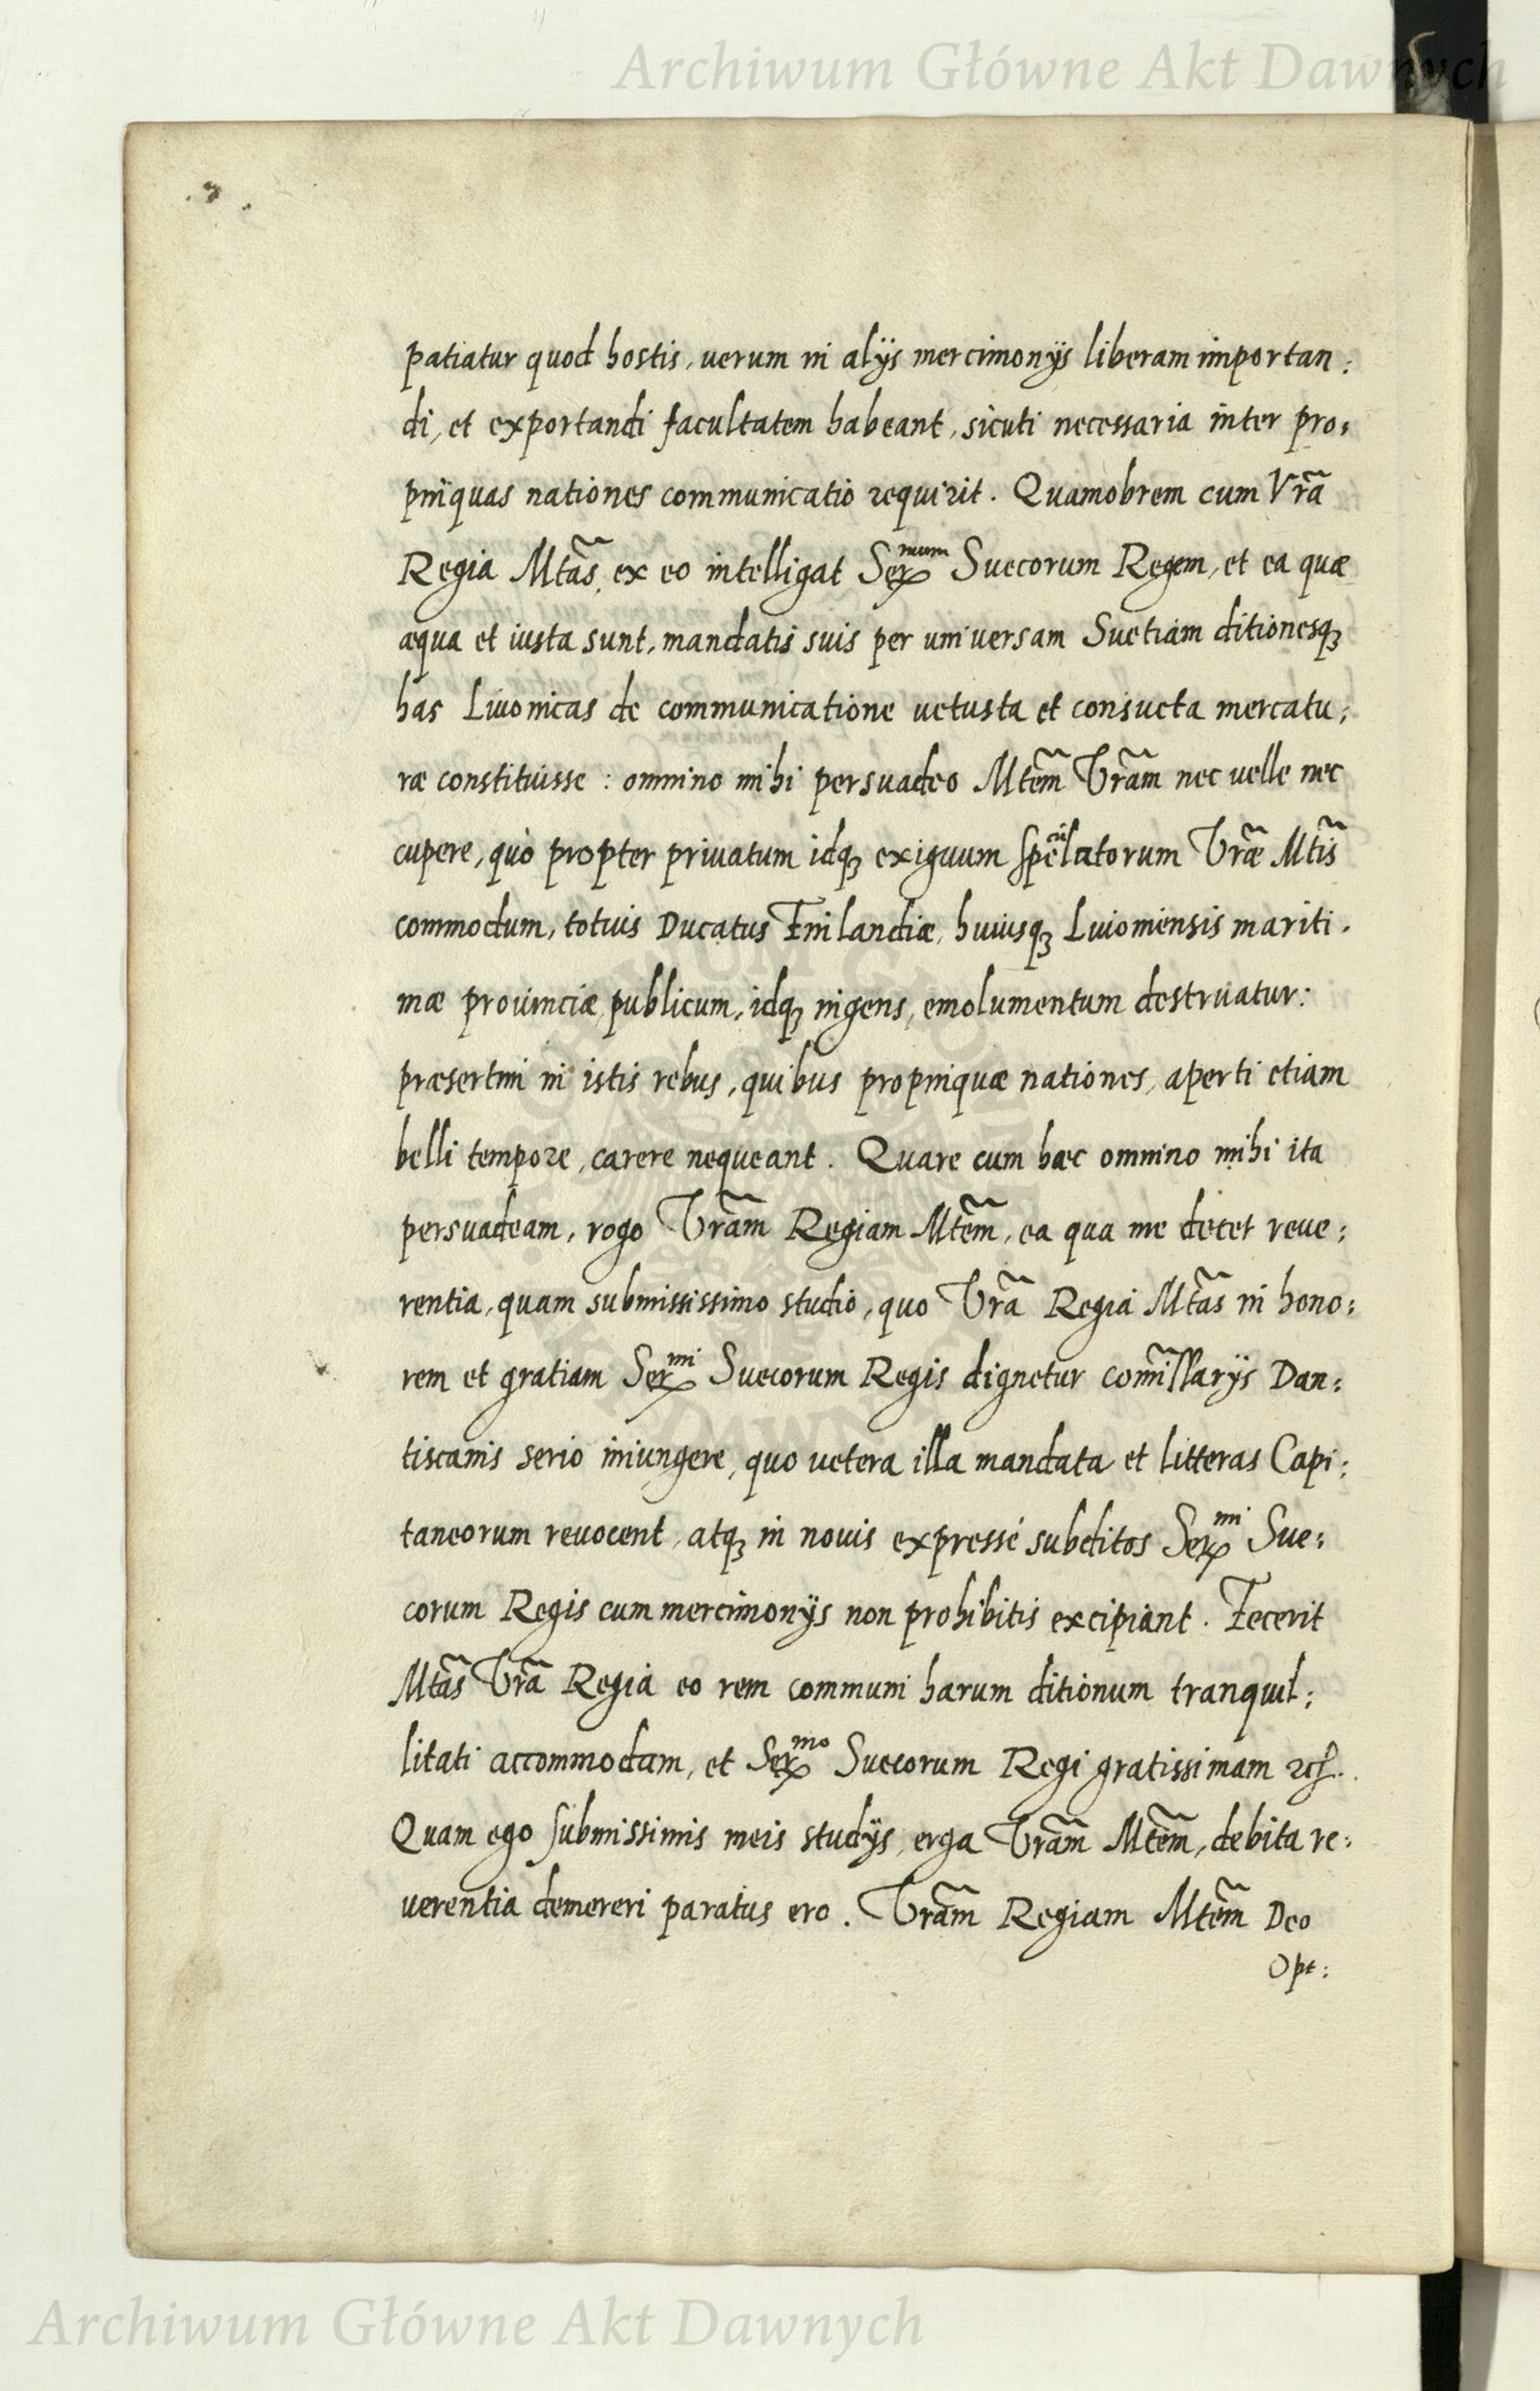 Archiwum Główne Akt Dawnych
patiatur quod hostis, uerum in alijs mercimonijs liberam importan:
di, et exportandi facultatem habeant, sicuti necessaria inter pro:
pinquas nationes communicatio requirit. Quamobrem cum Vr̃a
Regia Mtãs, ex eo intelligat Ser^mum Suecorum Regem, et ea quæ
æqua et iusta sunt, mandatis suis per universam Suetiam ditionesq3
has Liuonicas de communicatione uetusta et consueta mercatu:
ræ constituisse: omnino mihi persuadeo Mtẽm Vrãm nec uelle nec
cupere, quò propter priuatum idq3 exiguum specũlatorum Vræ̃ Mtĩs
commodum, totius Ducatus Finlandiæ, huiusq3 Liuoniensis mariti.
mæ prouinciæ publicum, idq3 ingens, emolumentum destruatur:
præsertim in istis rebus, quibus propinquæ nationes, aperti etiam
belli tempore, carere nequeant. Quare cum hæc omnino mihi ita
persuadeam, rogo Vrãm Regiam Mtẽm, ea qua me decet reue:
rentia, quam submississimo studio, quo Vrã Regia Mtãs in hono:
rem et gratiam Ser^mi Suecorum Regis dignetur com̃issarijs Dan:
tiscanis serio iniungere, quo uetera illa mandata et litteras Capi:
taneorum reuocent, atq3 in nouis expressè subditos Ser^mi Sue:
corum Regis cum mercimonijs non prohibitis excipiant. Fecerit
Mtãs Vrã Regia eo rem communi harum ditionum tranquil:
litati accommodam, et Ser^mo Suecorum Regi gratissimam etc.
Quam ego submissimis meis studijs, erga Vrãm Mtẽm, debita re:
uerentia demereri paratus ero. Vrãm Regiam Mtẽm Deo
Opt:
Archiwum Główne Akt Dawnych